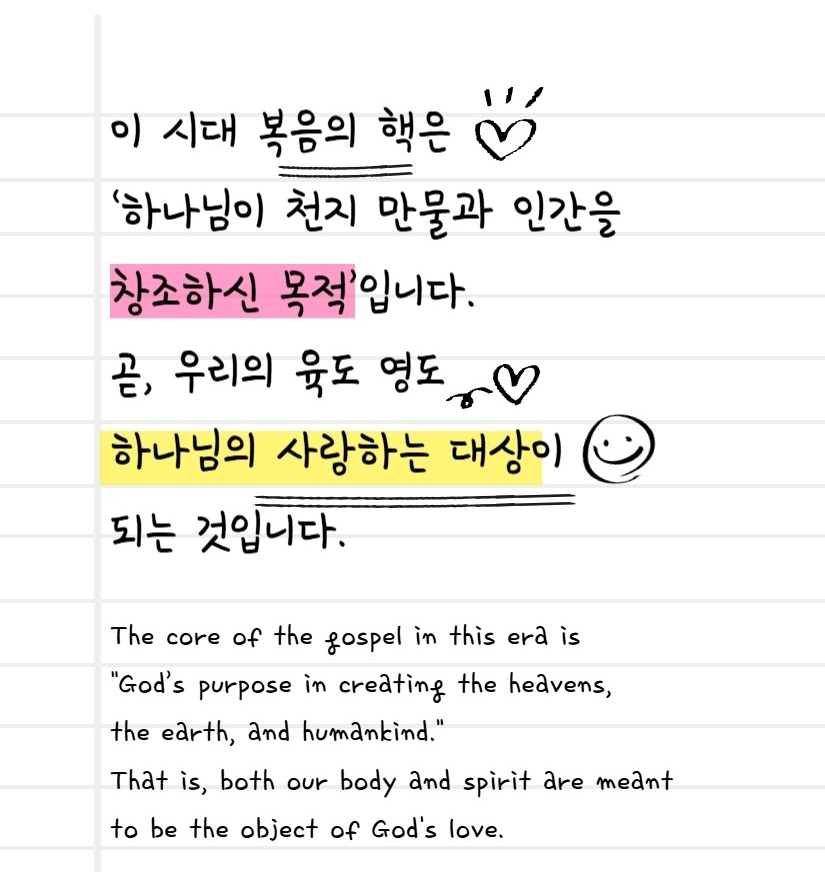 이 시대 복음의 핵은
‘하나님이 천지 만물과 인간을
창조하신 목적’입니다.
곧, 우리의 육도 영도
하나님의 사랑하는 대상이
되는 것입니다.
The core of the gospel in this era is
"God's purpose in creating the heavens,
the earth, and humankind."
That is, both our body and spirit are meant
to be the object of God's love.